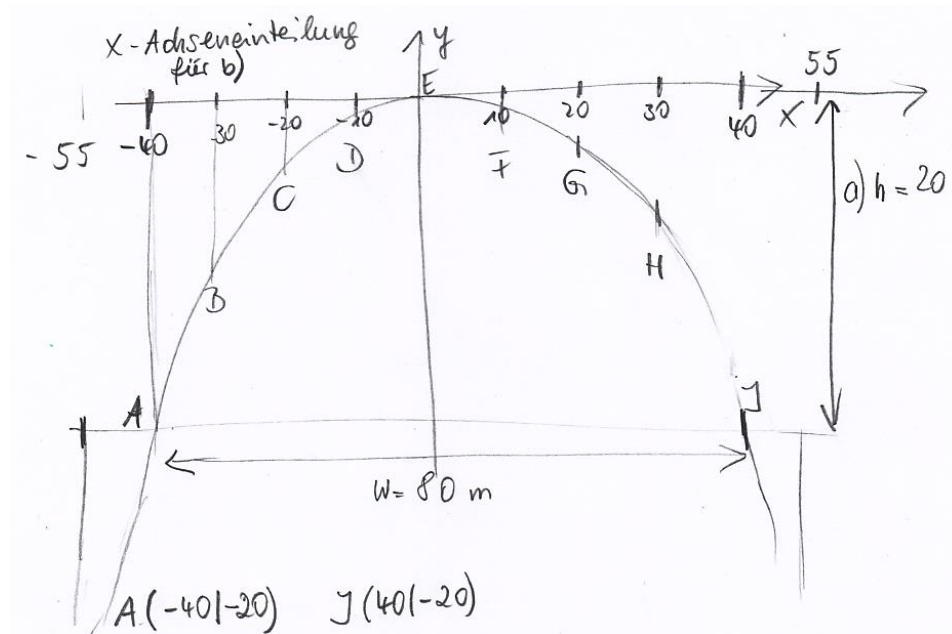 X-Achseneinteilung
für b)
y
E
55
-55 -40 -30 -20 -10 10 20 30 40 X
D F
C G
a) h = 20
B H
A J
W= 80 m
A(-40|-20) J(40|-20)